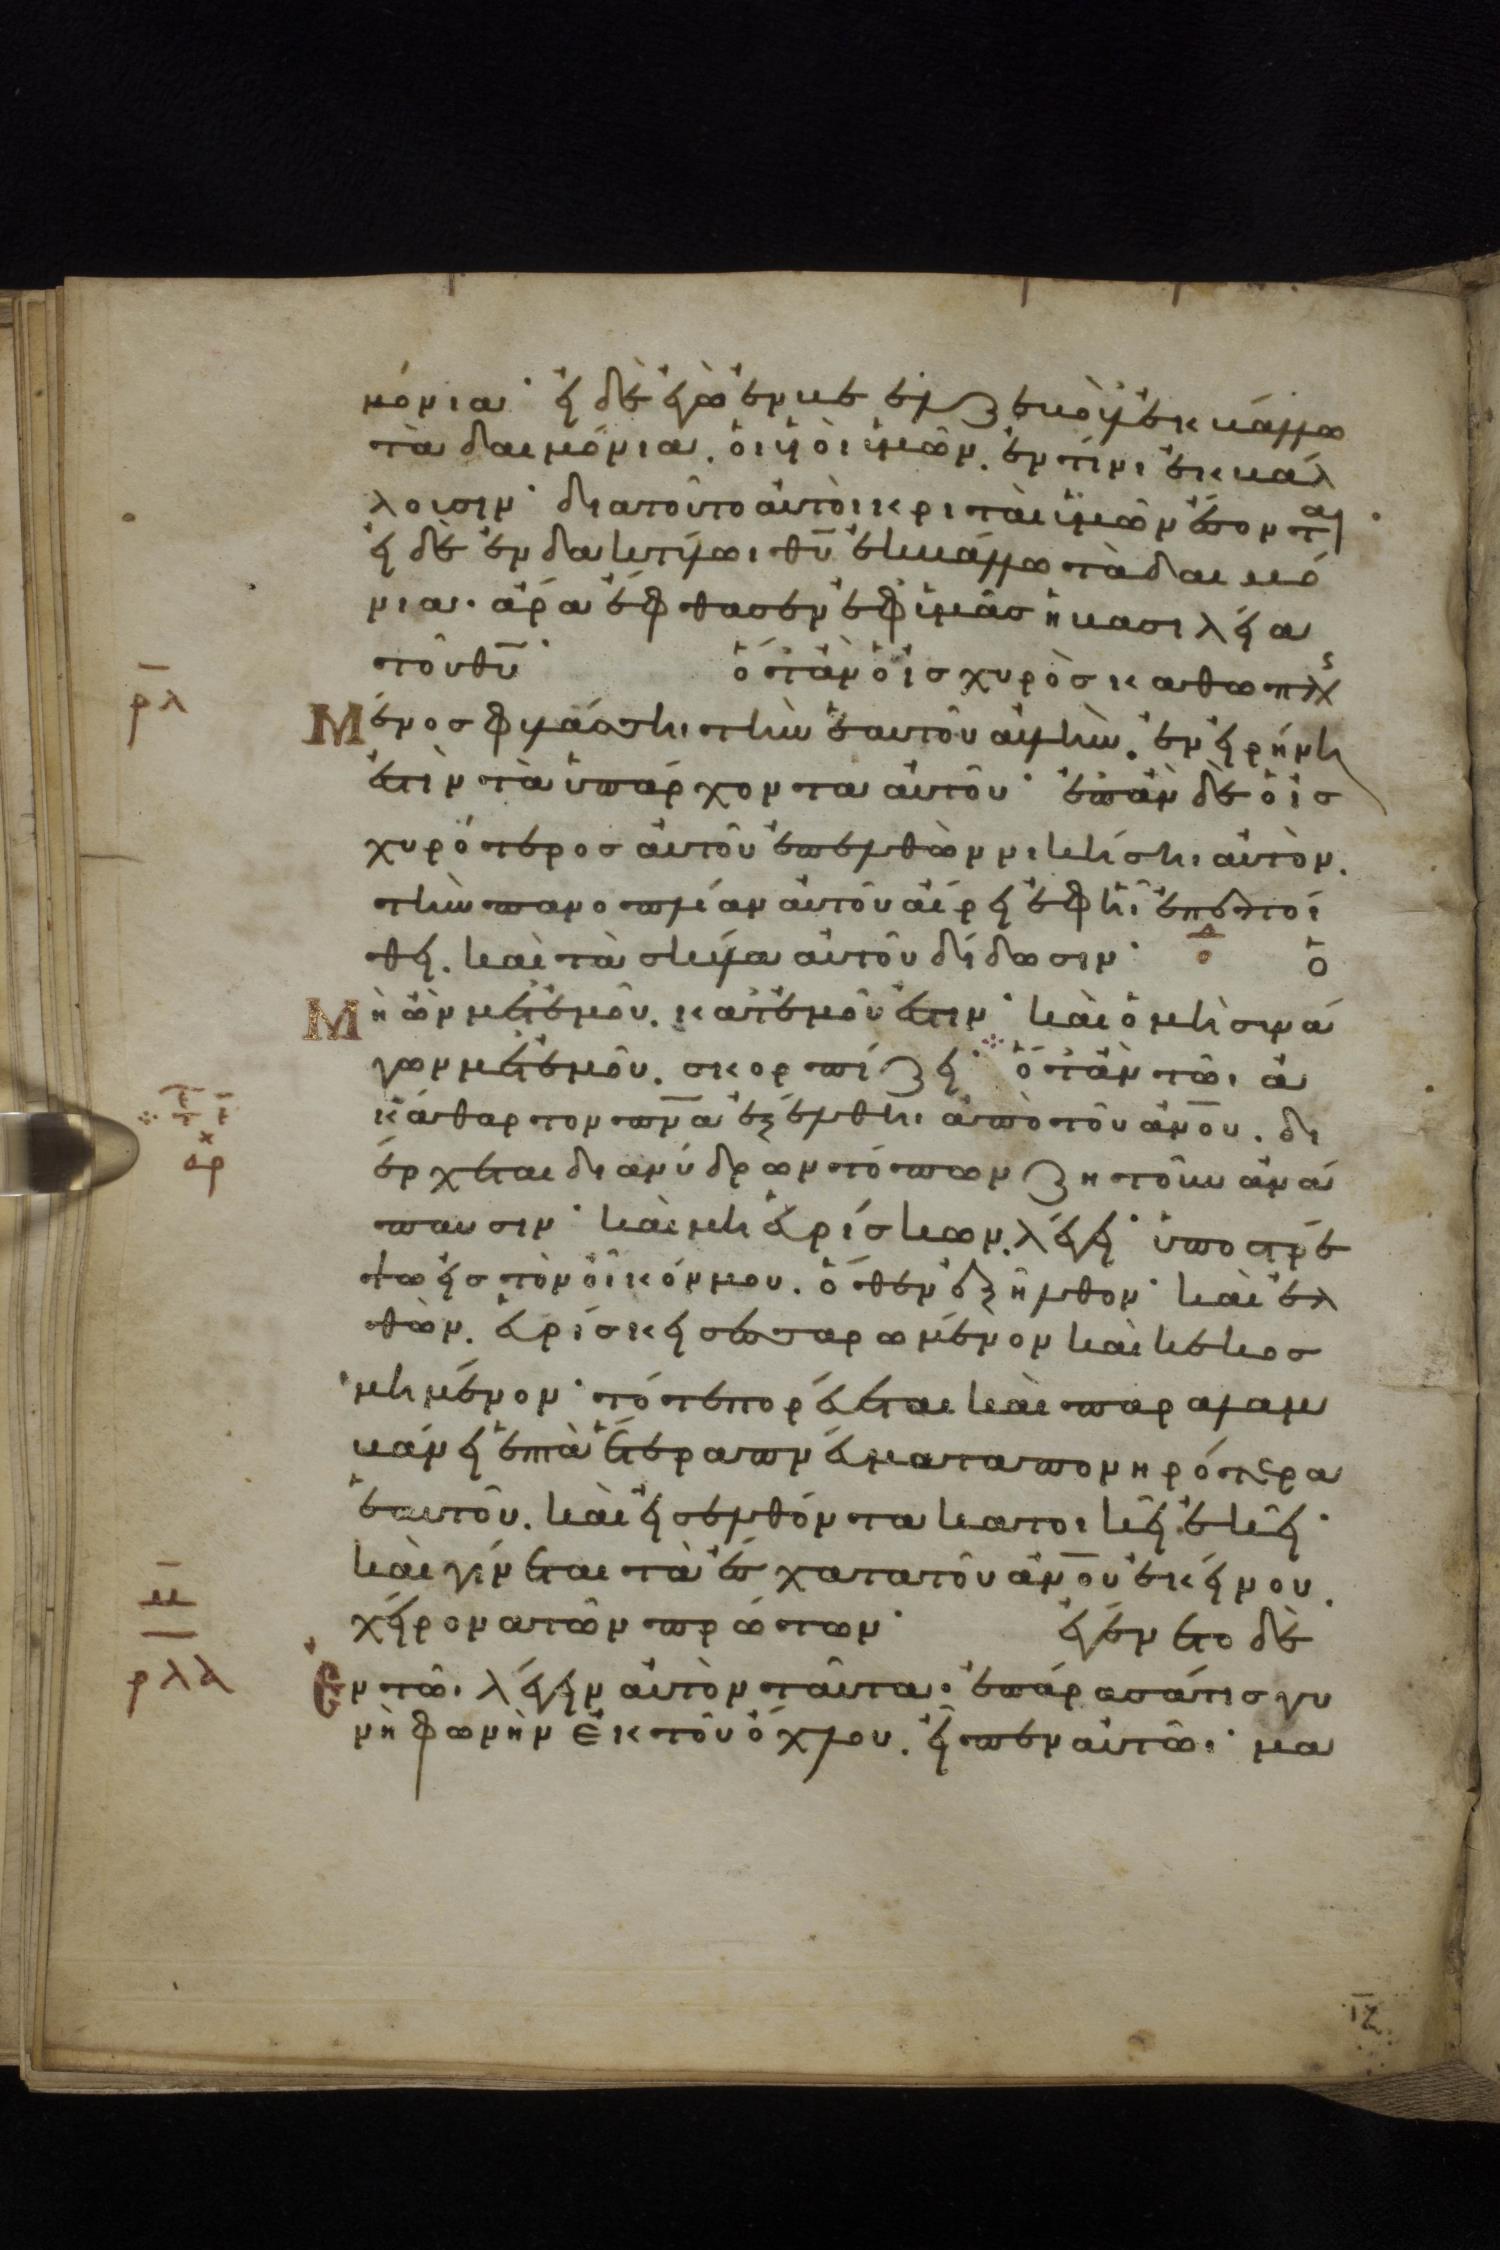 μόνια· εἰ δὲ ἐγὼ ἐν βεελζεβοὺλ ἐκβάλλω
τὰ δαιμόνια. οἱ υἱοὶ ὑμῶν. ἐν τίνι ἐκβάλ
λουσιν· διατοῦτο αὐτοὶ κριταὶ ὑμῶν ἔσονται·
εἰ δὲ ἐν δακτύλωι θῡ ἐκβάλλω τὰ δαιμό
νια· ἄρα ἔφθασεν ἐφ ὑμᾶς ἡ βασιλεία
τοῦ θῡ· ὅταν ὁ ἰσχυρὸς καθωπλισ
ρ̄λ
Μένος φυλάσσηι τὴν ἑαυτοῦ αὐλὴν. ἐν εἰρήνη
ἐστὶν τὰ ὑπάρχοντα αὐτοῦ· ἐπὰν δὲ ὁ ἰσ
χυρότερος αὐτοῦ ἐπελθὼν νικήσηι αὐτὸν.
τὴν πανοπλίαν αὐτοῦ αἴρει ἐφ ἧι ἐπεποί
θει. καὶ τὰ σκῦλα αὐτοῦ δίδωσιν· ὁ
Μὴ ὢν μετ ἐμοῦ. κατ ἐμοῦ ἐστιν· καὶ ὁ μὴ συνά
γων μετ ἐμοῦ. σκορπίζει· ὅταν τὸ ἀ
κάθαρτον πν̄α ἐξέλθηι ἀπὸ τοῦ ἀν̄ου. δι
έρχεται δι ἀνύδρων τόπων ζητοῦν ἀνά
παυσιν· καὶ μὴ εὑρίσκων. λέγει· ὑποστρέ
ψω εἰς τὸν οἶκόν μου. ὅθεν ἐξῆλθον· καὶ ἐλ
θὸν. εὑρίσκει σεσαρωμένον καὶ κεκοσ
μημένον· τότε πορεύεται καὶ παραλαμ
βάνει ἑπτὰ ἕτερα πνεύματα πονηρότερα
ἑαυτοῦ. καὶ εἰσελθόντα κατοικεῖ ἐκεῖ·
καὶ γίνεται τὰ ἔσχατα τοῦ ἀν̄ου ἐκείνου.
χείρονα τῶν πρώτων· ἐγένετο δὲ
ρλα
Ἐν τῶι λέγειν αὐτὸν ταῦτα· ἐπάρασά τις γυ
νὴ φωνὴν ἐκ τοῦ ὄχλου. εἶπεν αὐτῶι· μα
ιζ